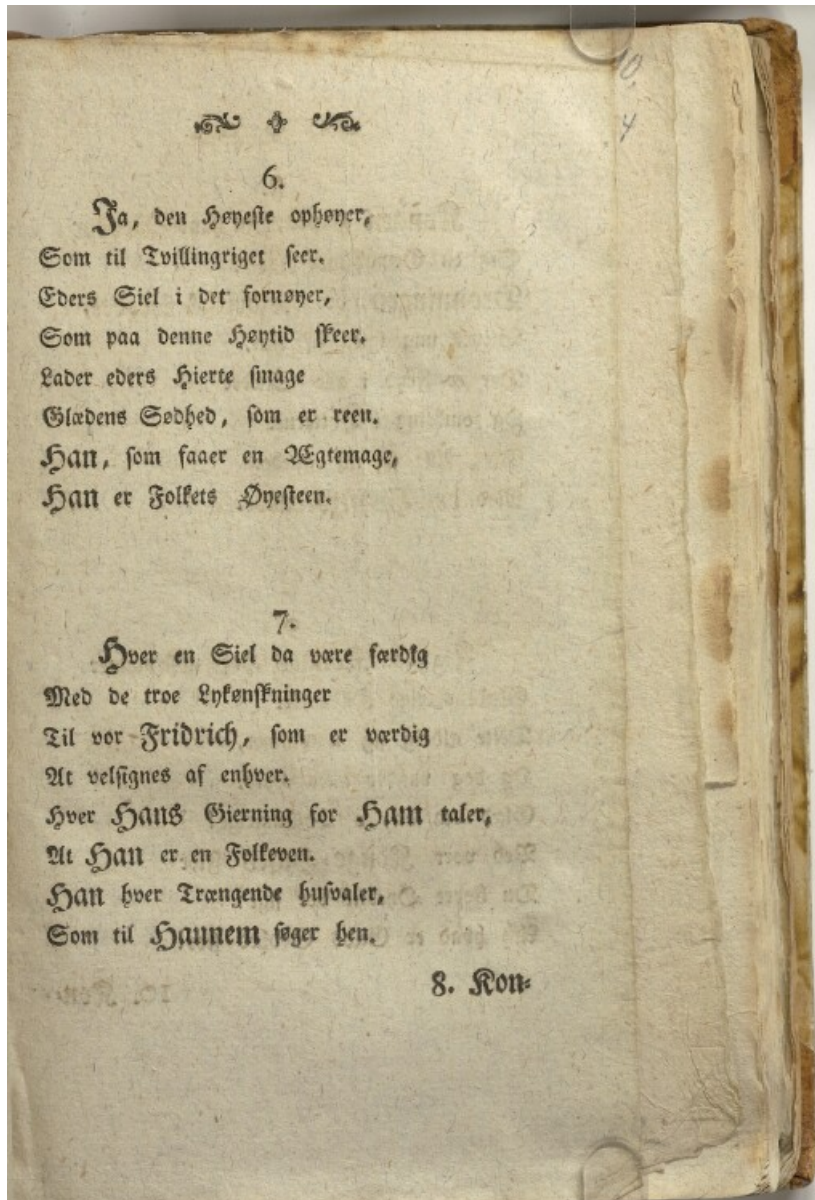 10.
4
6.
Ja, den Høyeste ophøyer,
Som til Tvillingriget seer.
Eders Siel i det fornøyer,
Som paa denne Høytid skeer.
Lader eders Hierte smage
Glædens Sødhed, som er reen.
Han, som faaer en Ægtemage,
Han er Folkets Øyesteen.
7.
Hver en Siel da være færdig
Med de troe Lykønskninger
Til vor Fridrich, som er værdig
At velsignes af enhver.
Hver Hans Gierning for Ham taler,
At Han er en Folkeven.
Han hver Trængende husvaler,
Som til Hannem søger hen.
8. Kon-